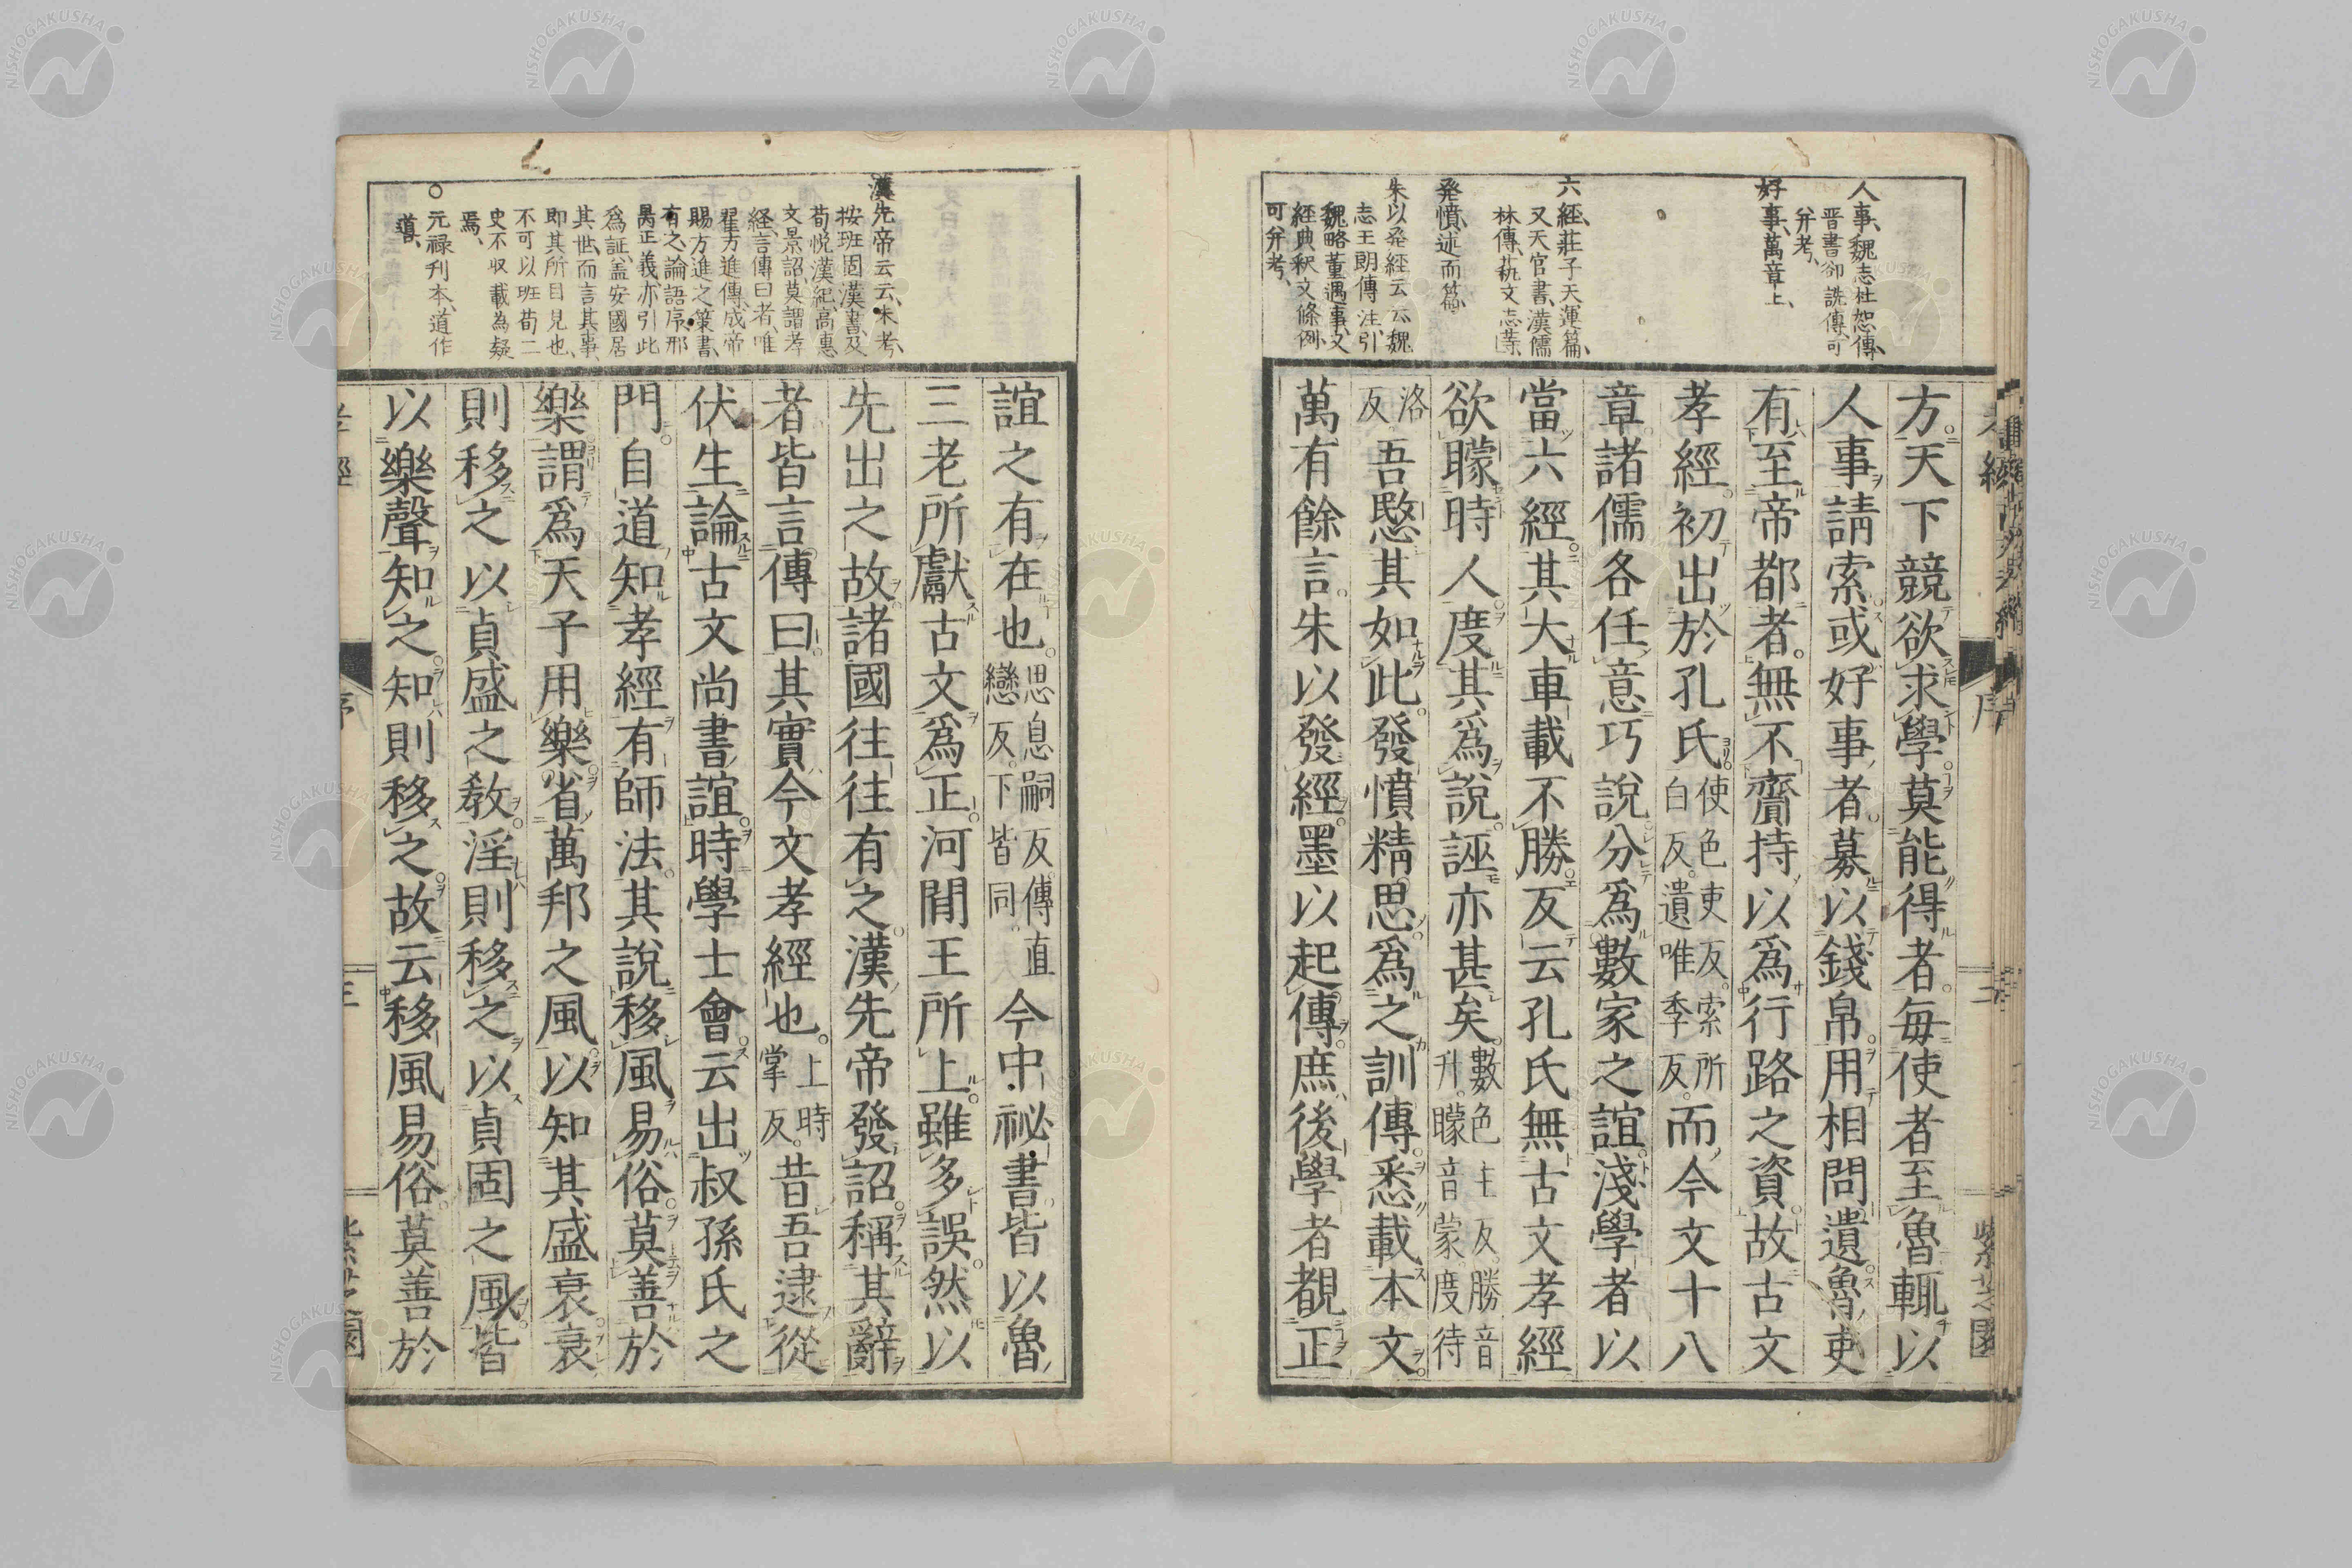 人事、魏志杜恕傳、
晋書郤詵傳、可
并考、
好事、萬章上、
六經、莊子天運篇、
又天官書、漢儒
林傳、藝文志等、
発憤、述而篇、
朱以発經云云、魏
志王朗傳注、引
魏略董遇事、又
經典釈文條例、
可并考、
方天下競欲求學莫能得者每使者至魯輒以
人事請索或好事者募以錢帛用相問遺魯吏
有至帝都者無不齎持以爲行路之資故古文
孝經初出於孔氏使色吏反索所白反遺唯季反而今文十八
章諸儒各任意巧說分爲數家之誼淺學者以
當六經其大車載不勝反云孔氏無古文孝經
欲矇時人度其爲說誣亦甚矣數色主反勝音升矇音蒙度待
洛反吾愍其如此發憤精思爲之訓傳悉載本文
萬有餘言朱以發經墨以起傳庶後學者覩正
漢先帝云云、朱考、
按班固漢書、及
荀悦漢紀、高惠
文景詔、莫謂孝
經、言傳曰者、唯
翟方進傳、成帝
賜方進之策書、
有之、論語序、邢
昺正義、亦引此
爲証、盖安國居
其世、而言其事、
即其所目見也、
不可以班荀二
史不収載為疑
焉、
○元禄刋本、道作
導、
誼之有在也思息嗣反傳直戀反下皆同今中祕書皆以魯
三老所獻古文爲正河閒王所上雖多誤然以
先出之故諸國往往有之漢先帝發詔稱其辭
者皆言傳曰其實今文孝經也上時掌反昔吾逮從
伏生論古文尚書誼時學士會云出叔孫氏之
門自道知孝經有師法其說移風易俗莫善於
樂謂爲天子用樂省萬邦之風以知其盛衰衰
則移之以貞盛之敎淫則移之以貞固之風皆
以樂聲知之知則移之故云移風易俗莫善於